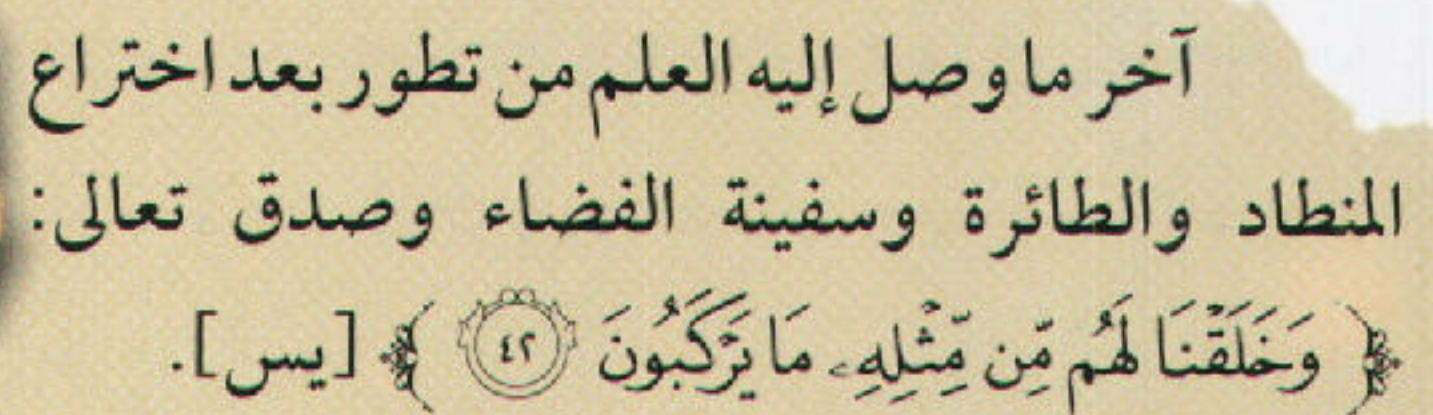 آخر ما وصل إليه العلم من تطور بعد اختراع
المنطاد والطائرة وسفينة الفضاء وصدق تعالى:
﴿ وَخَلَقْنَا لَهُم مِّن مِّثْلِهِۦ مَا يَرْكَبُونَ ٤٢ ﴾ [يس].